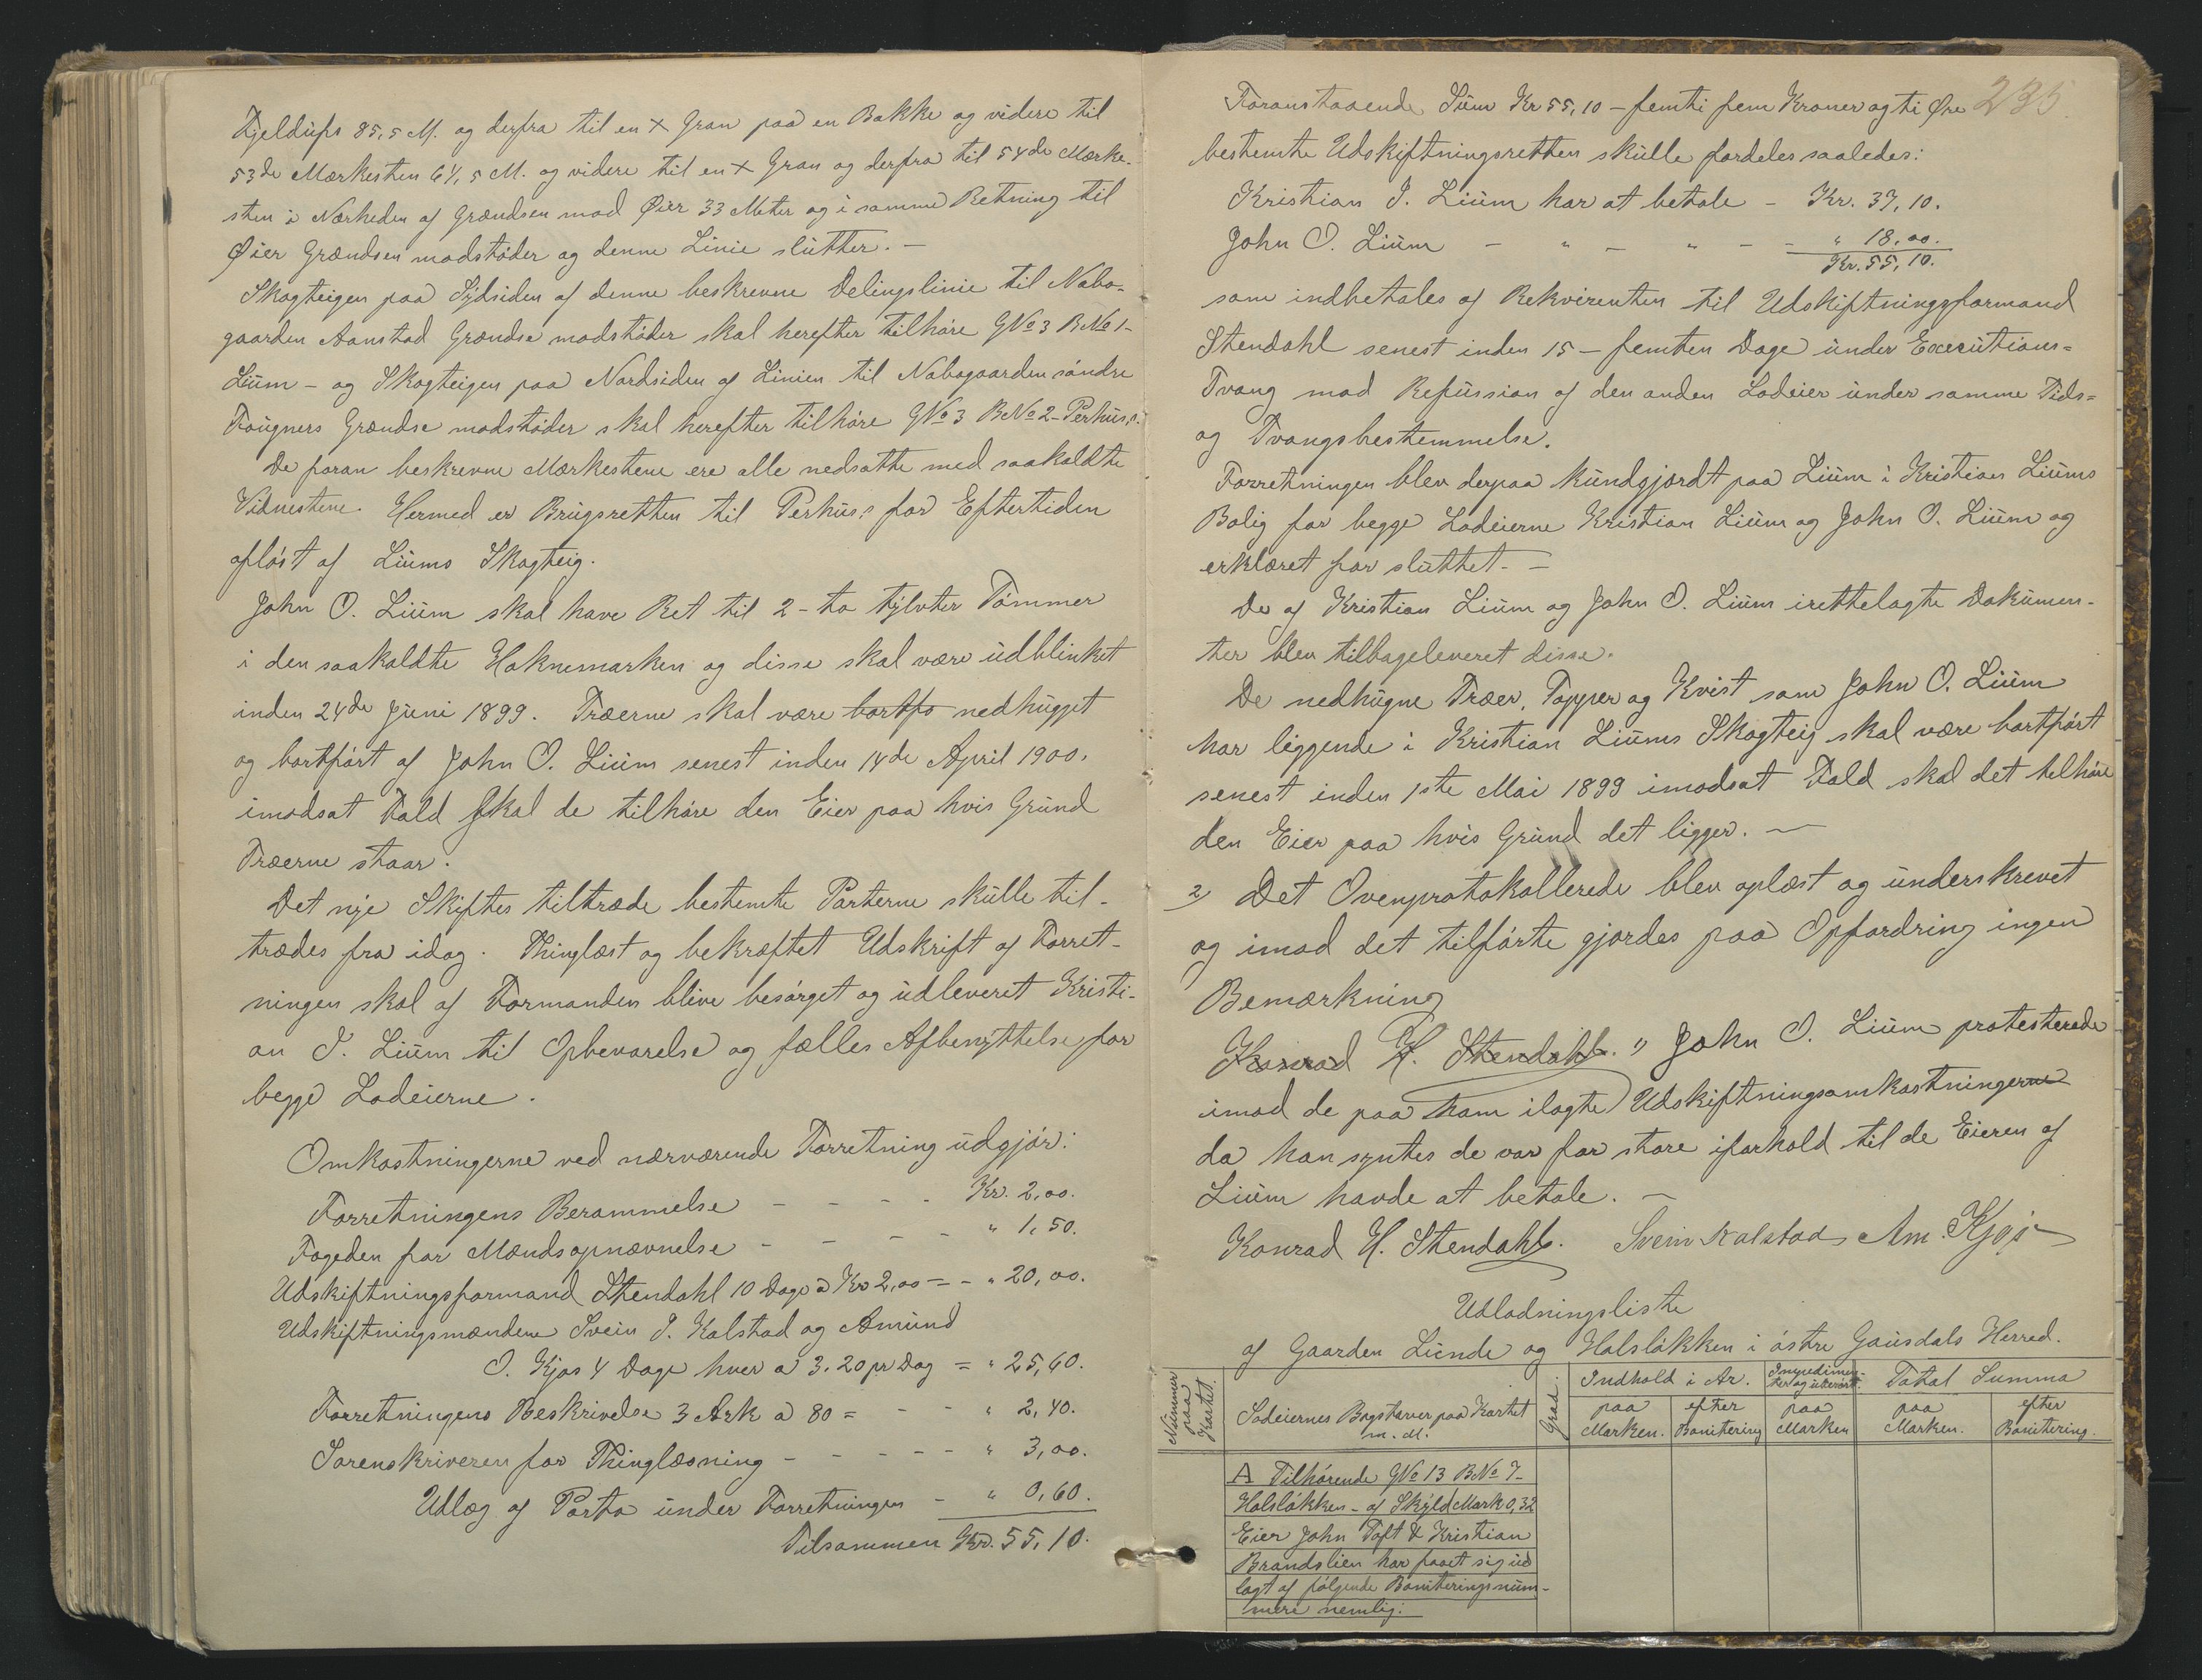 Fjeldufs 85,5 M. og derfra til en + Gran paa en Bakke og videre til
53de Mærkesten 64,5 M. og videre til en + Gran og derfra til 54de Mærke-
sten i Nærheden af Grændsen mod Øier 33 Meter og i samme Retning til
Øier Grændsen modstøder og denne Linie slutter. —
Skogteigen paa Sydsiden af denne beskrevne Delingslinie til Nabo-
gaarden Aanstad Grændse modstøder skal herefter tilhøre GNo 3 BNo 1-
Lium - og Skogteigen paa Nordsiden af Linien til Nabogaarden søndre
Fougners Grændse modstøder skal herefter tilhøre GNo 3 BNo 2 - Perhus.
De foran beskrevne Mærkestene ere alle nedsatte med saakaldte
Vidnestene. Hermed er Brugsretten til Perhus: for Eftertiden
afløst af Liums Skogteig.
John O. Lium skal have Ret til 2 - to tylvter Tømmer
i den saakaldte Haknemarken og disse skal være udblinket
inden 24de Juni 1899. Træerne skal være bortfø nedhugget
og bortført af John O. Lium senest inden 14de April 1900.
imodsat Fald skal de tilhøre den Eier paa hvis Grund
Træerne staar.
Det nye Skiftes tiltræde bestemte Parterne skulle til-
trædes fra idag. Thinglæst og bekræftet Udskrift af Forret-
ningen skal af Formanden blive besørget og udleveret Kristi-
an J. Lium til Opbevarelse og fælles Afbenyttelse for
begge Lodeierne.
Omkostningerne ved nærværende Forretning udgjør:
Forretningens Berammelse - - - - Kr. 2,00.
Fogeden for Mændsopnævnelse - - - - " 1,50.
Udskiftningsformand Stendahl 10 Dage a Kr 2,00 = - " 20,00.
Udskiftningsmændene Svein J. Kalstad og Amund
O. Kjøs 4 Dage hver a 3.20 pr Dag = " 25,60.
Forretningens Beskrivelse 3 Ark a 80 = - - - " 2,40.
Sorenskriveren for Thinglæsning - - - - - " 3,00.
Udlæg af Porto under Forretningen - " 0,60.
Tilsammen Kr. 55,10.
235
Foranstaaende Sum Kr 55,10 - femti fem Kroner og ti Øre
bestemte Udskiftningsretten skulle fordeles saaledes:
Kristian J. Lium har at betale - Kr. 37,10.
John O. Lium - " - " - - " 18,00.
Kr. 55,10.
som indbetales af Rekvirenten til Udskiftningsformand
Stendahl senest inden 15 - femten Dage under Executions=
Tvang mod Refussion af den anden Lodeier under samme Tids=
og Tvangsbestemmelse.
Forretningen blev derpaa kundgjordt paa Lium i Kristian Liums
Bolig for begge Lodeierne Kristian Lium og John O. Lium og
erklæret for sluttet. —
De af Kristian Lium og John O. Lium irettelagte Dokumen-
ter blev tilbageleveret disse.
De nedhugne Træer, Topper og Kvist som John O. Lium
har liggende i Kristian Liums Skogteig skal være bortført
senest inden 1ste Mai 1899 imodsat Fald skal det tilhøre
den Eier paa hvis Grund det ligger. —
2) Det Ovenprotokollerede blev oplæst og underskrevet
og imod det tilførte gjordes paa Opfordring ingen
Bemærkning
Konrad H. Stendahl. " John O. Lium protesterede
imod de paa ham ilagte Udskiftningsomkostningerne
da han syntes de var for store iforhold til de Eieren af
Lium havde at betale. —
Konrad H. Stendahl. Svein Kalstad Am. Kjøs
Udlodningsliste
af Gaarden Liende og Halsløkken i østre Gausdals Herred.
Nummer paa Kartet. Lodeiernes Bogstaver paa Kartet m. M. Grad. Indhold i Ar. Impedimenter og uberørt. Total Summa
paa Marken. efter Bonitering paa Marken paa Marken. efter Bonitering.
A Tilhørende GNo 13 BNo 7-
Halsløkken - af Skyld Mark 0,32
Eier John Toft & Kristian
Brandslien har faaet sig ud
lagt af følgende Boniteringsnum-
mere nemlig: